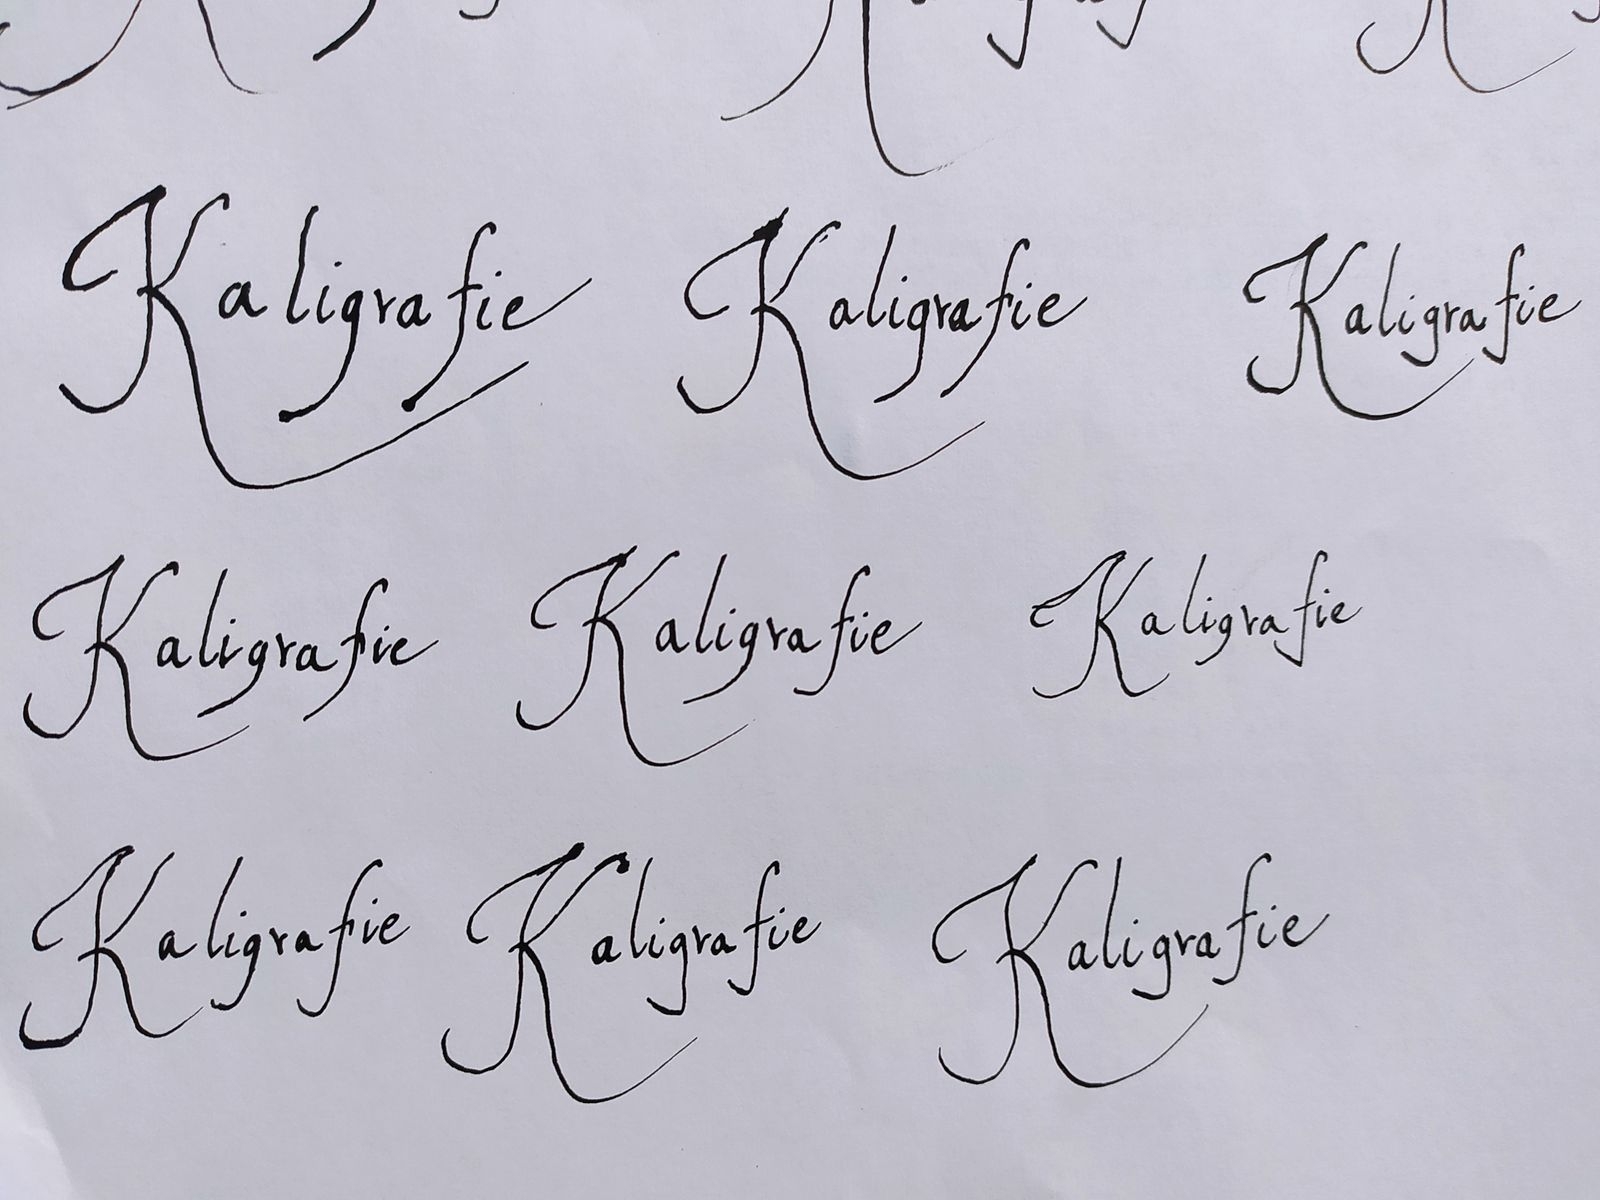 Kaligrafie Kaligrafie Kaligrafie
Kaligrafie Kaligrafie Kaligrafie
Kaligrafie Kaligrafie Kaligrafie